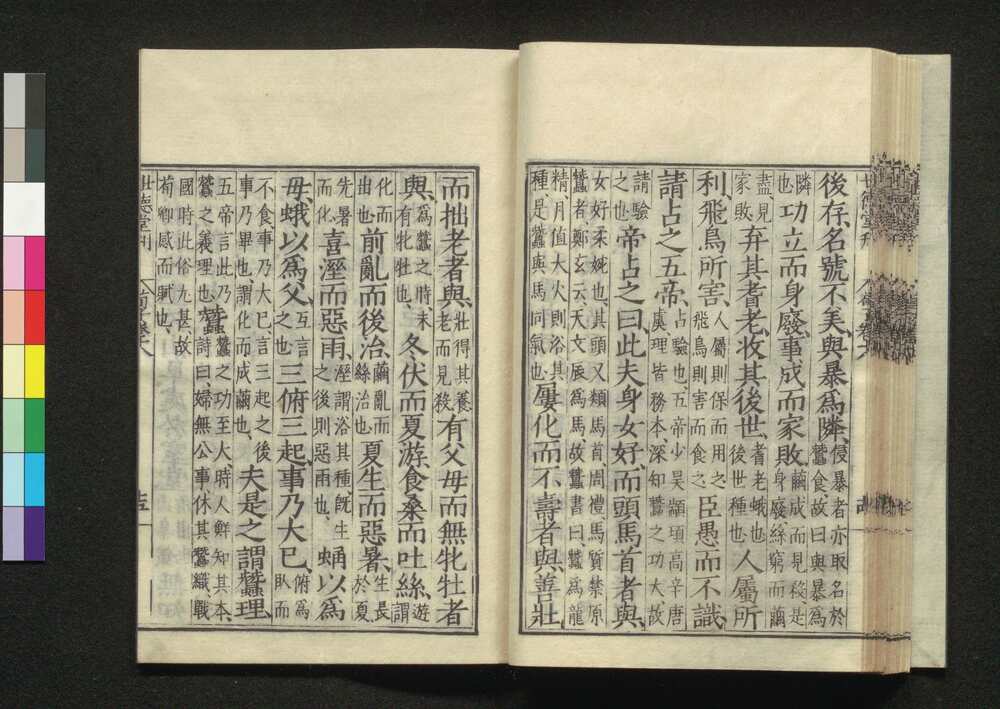 後存名號不美與暴爲隣侵暴者亦取名於蠶食故曰與暴爲
隣也功立而身廢事成而家敗繭成而見殺是身廢絲窮而繭
盡見家敗弃其耆老收其後世耆老蛾也後世種也人屬所
利飛鳥所害人屬則保而用之飛鳥則害而食之臣愚而不識
請占之五帝占驗也五帝少昊顓頊高辛唐虞理皆務本深知蠶之功大故
請驗之也帝占之曰此夫身女好而頭馬首者與
女好柔婉也其頭又類馬首周禮馬質禁原蠶者鄭玄云天文辰爲馬故蠶書曰蠶爲龍
精月值大火則浴其種是蠶與馬同氣也屢化而不壽者與善壯
而拙老者與壯得其養老而見殺有父母而無牝牡者
與爲蠶之時未有牝牡也冬伏而夏游食桑而吐絲游謂
化而出也前亂而後治繭亂而絲治也夏生而惡暑生長於夏
先暑而化喜溼而惡雨溼謂浴其種既生之後則惡雨也蛹以爲
母蛾以爲父互言之也三俯三起事乃大已俯爲臥而
不食事乃大已言三起之後事乃畢也謂化而成繭也夫是之謂蠶理
五帝言此乃蠶之義理也蠶蠶之功至大時人鮮知其本詩曰婦無公事休其蠶織戰
國時此俗尤甚故荀卿感而賦也
世德堂刊